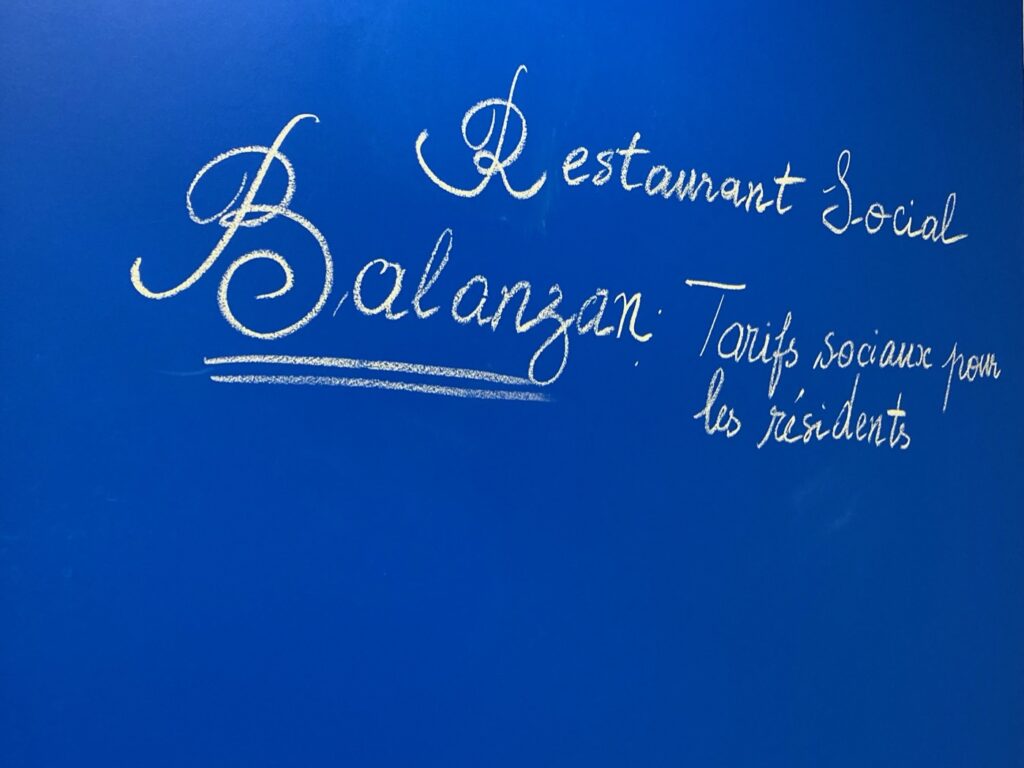 Restaurant Social
Balanzan :
Tarifs sociaux pour
les résidents